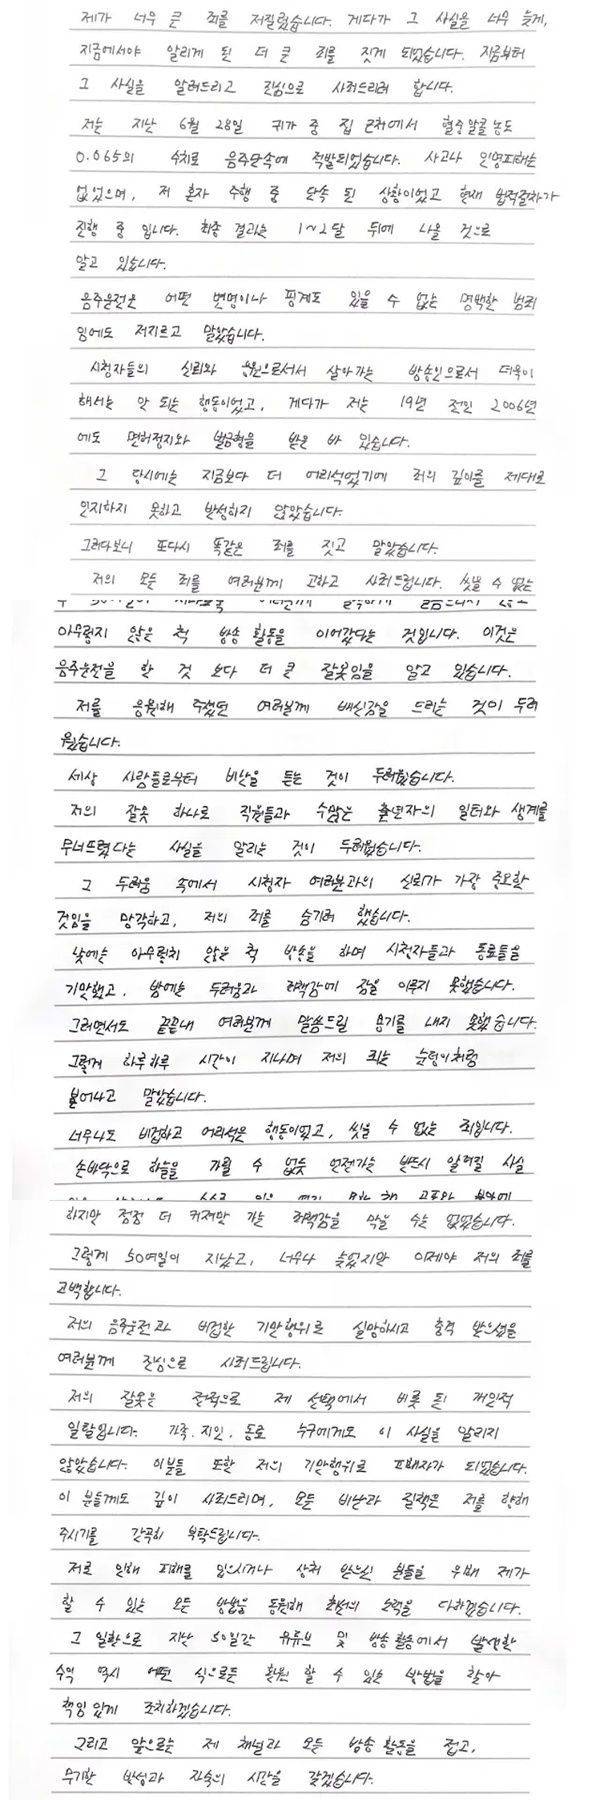 제가 너무 큰 죄를 저질렀습니다. 게다가 그 사실을 너무 늦게,
지금에서야 알리게 된 더 큰 죄를 짓게 되었습니다. 지금부터
그 사실을 알려드리고 진심으로 사죄드리려 합니다.
저는 지난 6월 28일 귀가 중 집 근처에서 혈중알콜농도
0.065의 수치로 음주단속에 적발되었습니다. 사고나 인명피해는
없었으며, 저 혼자 주행 중 단속 된 상황이었고 현재 법적절차가
진행 중 입니다. 최종 결과는 1~2달 뒤에 나올 것으로
알고 있습니다.
음주운전은 어떤 변명이나 핑계도 있을 수 없는 명백한 범죄
임에도 저지르고 말았습니다.
시청자들의 신뢰와 응원으로서서 살아가는 방송인으로서 더욱이
해서는 안 되는 행동이었고, 게다가 저는 19년 전인 2006년
에도 면허정지와 벌금형을 받은 바 있습니다.
그 당시에는 지금보다 더 어리석었기에 죄의 깊이를 제대로
인지하지 못하고 반성하지 않았습니다.
그러다보니 또다시 똑같은 죄를 짓고 말았습니다.
저의 모든 죄를 여러분께 고하고 사죄드립니다. 씻을 수 없는
아무렇지 않은 척 방송 활동을 이어갔다는 것입니다. 이것은
음주운전을 한 것 보다 더 큰 잘못임을 알고 있습니다.
저를 응원해 주셨던 여러분께 배신감을 드리는 것이 두려
웠습니다.
세상 사람들로부터 비난을 듣는 것이 두려웠습니다.
저의 잘못 하나로 직원들과 수많은 출연자의 일터와 생계를
무너뜨렸다는 사실을 알리는 것이 두려웠습니다.
그 두려움 속에서 시청자 여러분과의 신뢰가 가장 중요한
것임을 망각하고, 저의 죄를 숨기려 했습니다.
낮에는 아무렇치 않은 척 방송을 하며 시청자들과 동료들을
기만했고, 밤에는 두려움과 죄책감에 잠을 이루지 못했습니다.
그러면서도 끝끝내 여러분께 말씀드릴 용기를 내지 못했습니다.
그렇게 하루하루 시간이 지나며 저의 죄는 눈덩이처럼
불어나고 말았습니다.
너무나도 비겁하고 어리석은 행동이었고, 씻을 수 없는 죄입니다.
손바닥으로 하늘을 가릴 수 없듯 언젠가는 반드시 알려질 사실
하지만 점점 더 커져만 가는 죄책감을 막을 수는 없었습니다.
그렇게 50여일이 지났고, 너무나 늦었지만 이제야 저의 죄를
고백합니다.
저의 음주운전과 비겁한 기만행위로 실망하시고 충격 받으셨을
여러분께 진심으로 사죄드립니다.
저의 잘못은 전적으로 제 선택에서 비롯 된 개인적
일탈입니다. 가족, 지인, 동료 누구에게도 이 사실을 알리지
않았습니다. 이분들 또한 저의 기만행위로 피해자가 되었습니다.
이 분들께도 깊이 사죄드리며, 모든 비난과 질책은 저를 향해
주시기를 간곡히 부탁드립니다.
저로 인해 피해를 입으시거나 상처 받으신 분들을 위해 제가
할 수 있는 모든 방법을 동원해 최선의 노력을 다하겠습니다.
그 일환으로 지난 50일간 유튜브 및 방송 활동에서 발생한
수익 역시 어떤 식으로든 환원 할 수 있는 방법을 찾아
책임 있게 조치하겠습니다.
그리고 앞으로는 제 채널과 모든 방송 활동을 접고,
무기한 반성과 자숙의 시간을 갖겠습니다.